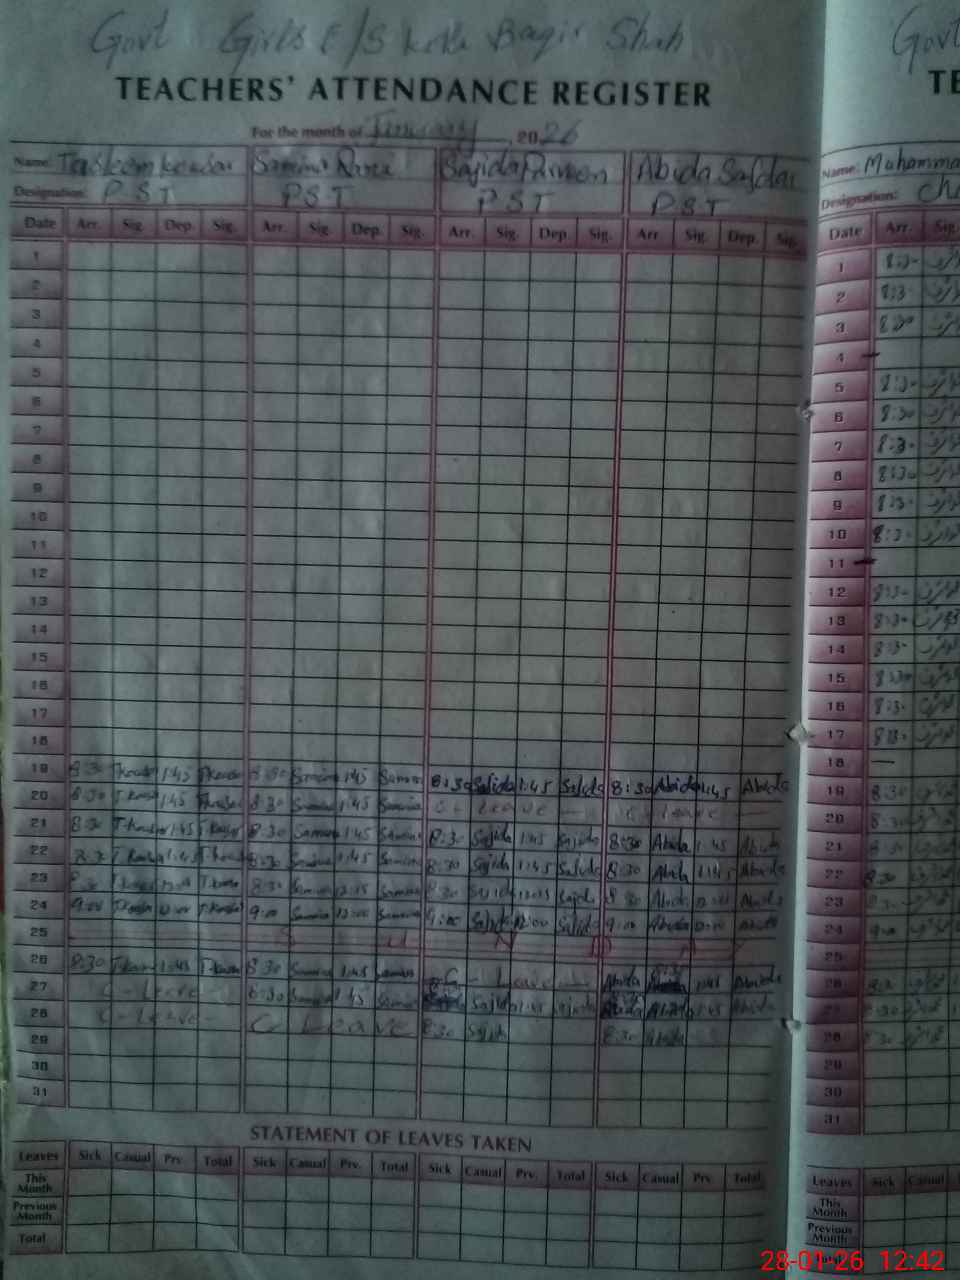 Govt Girls E/S Baqir Shah
TEACHERS' ATTENDANCE REGISTER
For the month of January, 2026
Name: Tasleem kousar Samina Rana Sajida Parveen Abida Safdar
Designation: P.S.T P.S.T P.S.T P.S.T
Date Arr. Sig. Dep. Sig. Arr. Sig. Dep. Sig. Arr. Sig. Dep. Sig. Arr Sig. Dep. Sig.
1
2
3
4
5
6
7
8
9
10
11
12
13
14
15
16
17
18
19 8:30 T.kousar 1:45 T.kousar 8:30 Samina 1:45 Samina 8:30 Sajida 1:45 Sajida 8:30 Abida 1:45 Abida
20 8:30 T.kousar 1:45 T.kousar 8:30 Samina 1:45 Samina C - Leave — C - Leave —
21 8:30 T.kousar 1:45 T.kousar 8:30 Samina 1:45 Samina 8:30 Sajida 1:45 Sajida 8:30 Abida 1:45 Abida
22 8:30 T.kousar 1:45 T.kousar 8:30 Samina 1:45 Samina 8:30 Sajida 1:45 Sajida 8:30 Abida 1:45 Abida
23 8:30 T.kousar T.kousar 8:30 Samina Samina 8:30 Sajida Sajida 8:30 Abida Abida
24 9:00 T.kousar 12:00 T.kousar 9:00 Samina 12:00 Samina 9:00 Sajida 12:00 Sajida 9:00 Abida 12:00 Abida
25 S U N D A Y
26 8:30 T.kousar 1:45 T.kousar 8:30 Samina 1:45 Samina C - Leave — Abida 1:45 Abida
27 C - Leave - 8:30 Samina 1:45 Samina Sajida 1:45 Sajida Abida 1:45 Abida
28 C - Leave - C Leave 8:30 Sajida 8:30 Abida
29
30
31
STATEMENT OF LEAVES TAKEN
Leaves Sick Casual Prv. Total Sick Casual Prv. Total Sick Casual Prv. Total Sick Casual Prv. Total
This Month
Previous Month
Total
Govt
TE
Name: Muhamma
Designation: Ch
Date Arr. Sig.
1 8:30
2 8:30
3 8:30
4
5 8:30
6 8:30
7 8:30
8 8:30
9 8:30
10 8:30
11
12 8:30
13 8:30
14 8:30
15 8:30
16 8:30
17 8:30
18 —
19 8:30
20 8:30
21 8:30
22 8:30
23 8:30
24 9:00
25
26 8:30
27 8:30
28 8:30
29
30
31
Leaves Sick Casual
This Month
Previous Month
Total
28-01-26 12:42